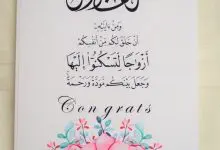 وَمِنْ ءَايَٰتِهِۦ
أَنْ خَلَقَ لَكُم مِّنْ أَنفُسِكُمْ
أَزْوَٰجًا لِّتَسْكُنُوٓا۟ إِلَيْهَا
وَجَعَلَ بَيْنَكُم مَّوَدَّةً وَرَحْمَةً
Congrats